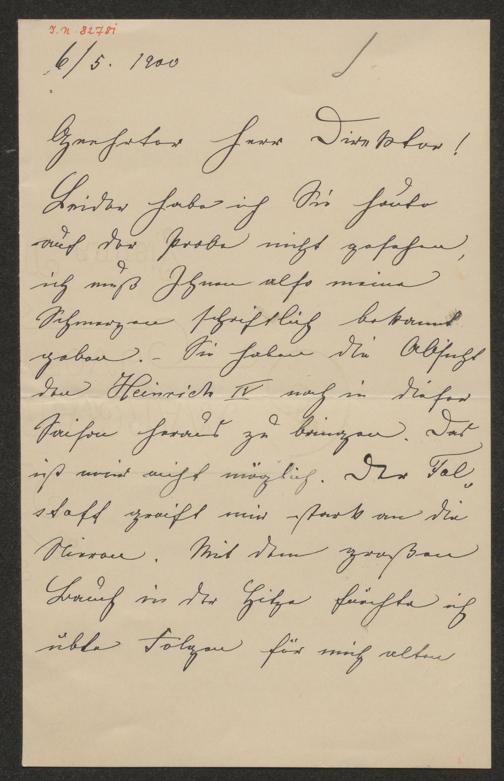 J.N. 82781
6/5. 1900
Geehrter Herr Direktor!
Leider habe ich Sie heute
auf der Probe nicht gesehen,
ich muß Ihnen also meine
Schmerzen schriftlich bekannt
geben. – Sie haben die Absicht
den Heinrich IV noch in dieser
Saison heraus zu bringen. Das
ist mir nicht möglich. Der Fal„
staff greift mir stark an die
Nieren. Mit dem großen
Bauch in der Hitze fürchte ich
üble Folgen für mich alten